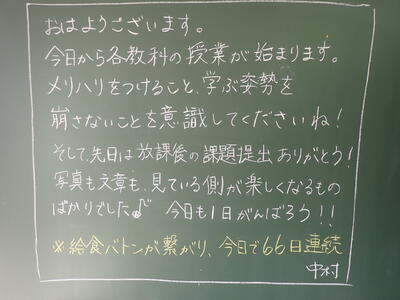 おはようございます。
今日から各教科の授業が始まります。
メリハリをつけること、学ぶ姿勢を
崩さないことを意識してくださいね！
そして、先日は放課後の課題提出、ありがとう！
写真も文章も、見ている側が楽しくなるもの
ばかりでした♪ 今日も1日がんばろう！！
※給食バトンが繋がり、今日で66日連続
中村